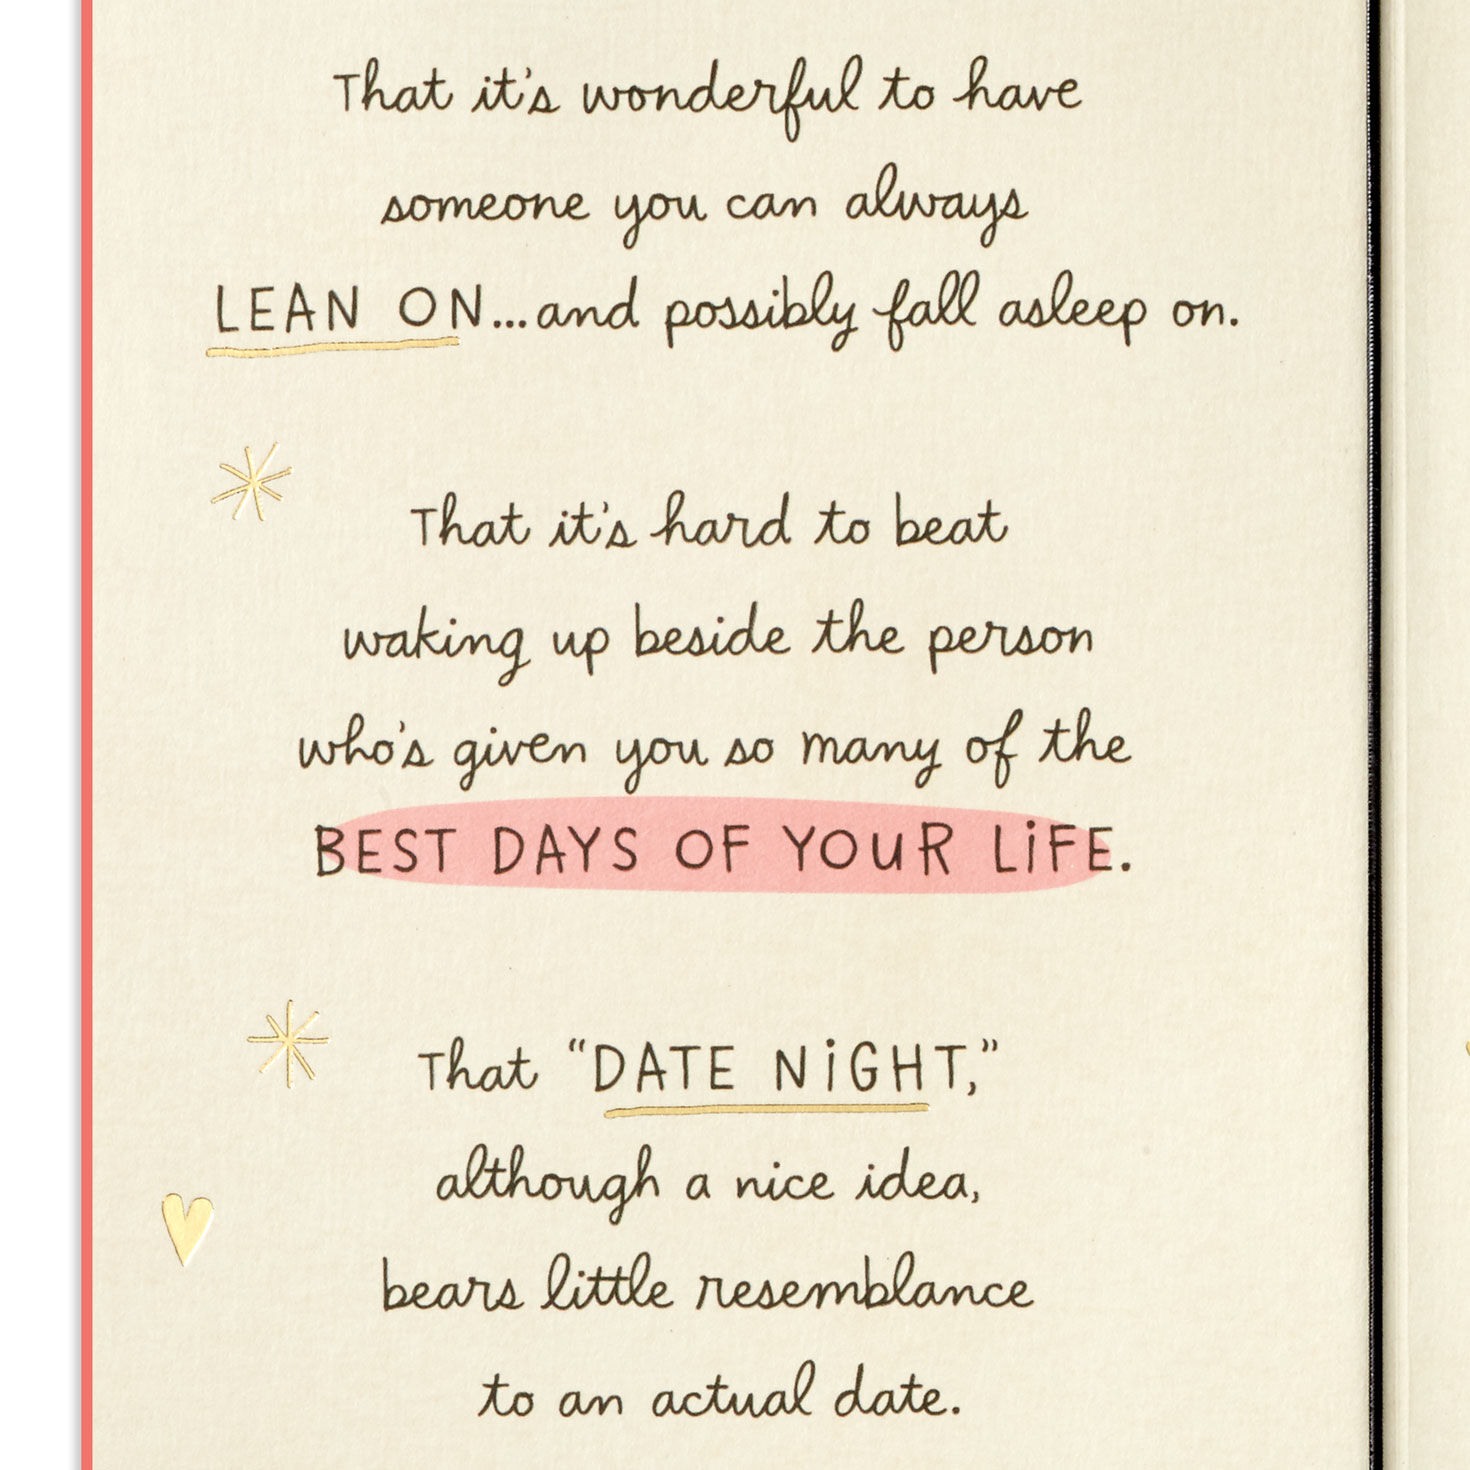 That it's wonderful to have
someone you can always
LEAN ON...and possibly fall asleep on.
That it's hard to beat
waking up beside the person
who's given you so many of the
BEST DAYS OF YOUR LiFE.
That “DATE NiGHT,”
although a nice idea,
bears little resemblance
to an actual date.